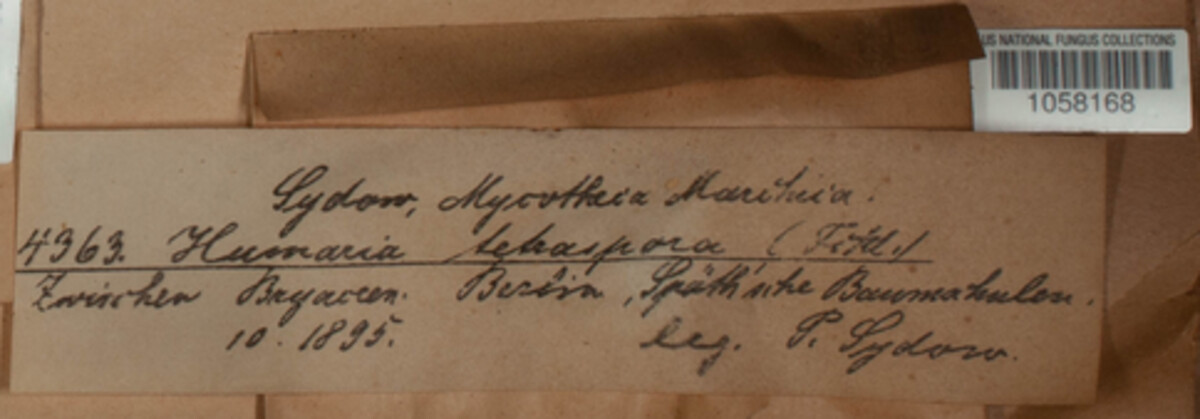 US NATIONAL FUNGUS COLLECTIONS
1058168
Sydow, Mycotheca Marchica.
4363. Humaria tetraspora (Fckl.)
Zwischen Bryaceen. Berlin, Späth'sche Baumschulen.
10. 1895. leg. P. Sydow.